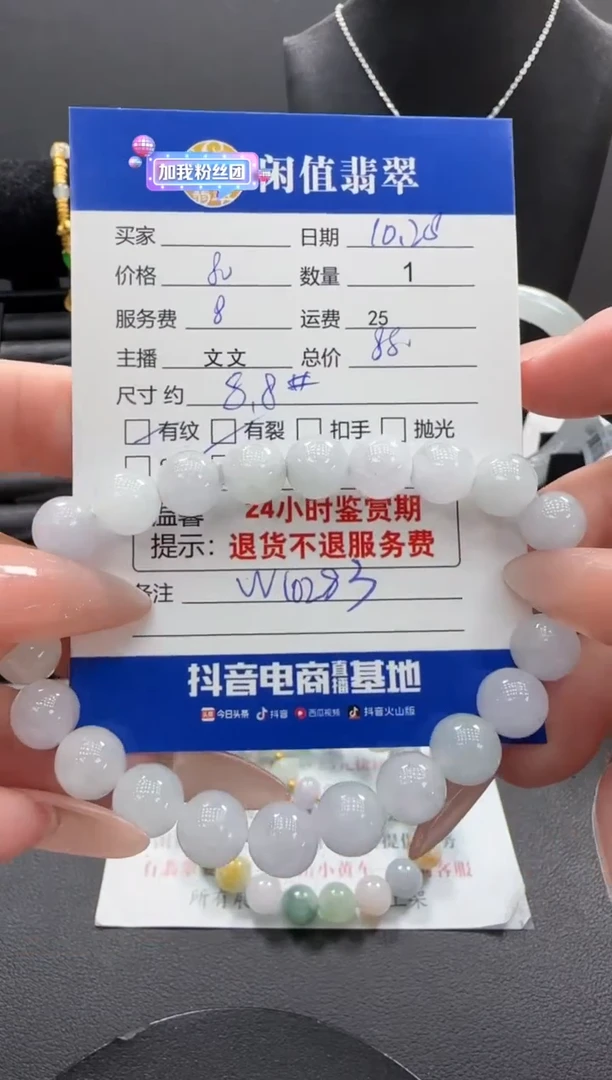 加我粉丝团
闲值翡翠
买家 日期 10.28
价格 80 数量 1
服务费 8 运费 25
主播 文文 总价 88.
尺寸 约 8.8#
有纹 有裂 扣手 抛光
温馨 24小时鉴赏期
提示: 退货不退服务费
备注 W10283
抖音电商直播基地
今日头条 抖音 西瓜视频 抖音火山版
小黄车 客服
所有